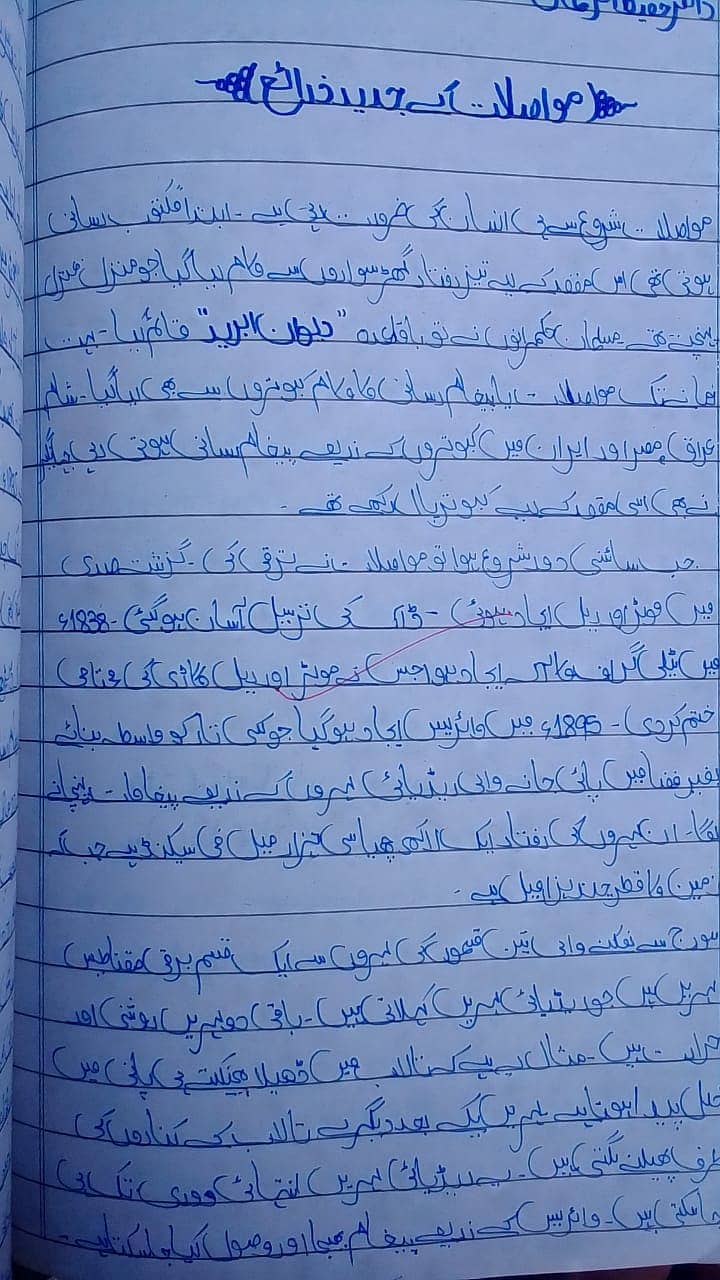 ڈاکٹر حفیظ الرحمٰن
(مواصلات کے جدید ذرائع)
مواصلات شروع سے ہی انسان کی ضرورت رہی ہے۔ ابتدا مکتوب رسانی
ہوتی تھی اس مقصد کے لیے تیز رفتار گھڑ سواروں سے کام لیا گیا جو منزل منزل
پہنچتے تھے مسلمان حکمرانوں نے تو باقاعدہ "دیوان البرید" قائم کیا۔ بہت
زمانے تک مواصلات یا پیغام رسانی کا کام کبوتروں سے بھی لیا گیا۔ شام
عراق، مصر اور ایران میں کبوتروں کے ذریعے پیغام رسانی ہوتی رہی
نے بھی اسی مقصد کے لیے کبوتر پال رکھے تھے۔
جب سائنسی دور شروع ہوا تو مواصلات نے ترقی کی۔ گزشتہ صدی
میں موٹر اور ریل ایجاد ہوئی۔ ڈاک کی ترسیل آسان ہو گئی۔ 1838ء
میں ٹیلی گراف کا آلہ ایجاد ہوا جس نے موٹر اور ریل گاڑی کی محتاجی
ختم کر دی۔ 1895ء میں وائرلیس ایجاد ہو گیا جو کسی تار کو واسطہ بنائے
بغیر فضا میں پائی جانے والی ریڈیائی لہروں کے ذریعے پیغامات پہنچانے
لگا۔ ان لہروں کی رفتار ایک لاکھ چھیاسی ہزار میل فی سیکنڈ ہے جب کہ
زمین کا قطر چند ہزار میل ہے۔
سورج سے نکلنے والی تین قسموں کی لہروں سے ایک قسم برقی مقناطیسی
لہریں ہیں جو ریڈیائی لہریں کہلاتی ہیں۔ باقی دو لہریں روشنی اور
حرارت ہیں۔ مثال یہ ہے کہ تالاب میں ڈھیلا پھینکتے ہی پانی میں
پیدا ہوتا ہے لہریں یکے بعد دیگرے تالاب کے کناروں کی
طرف پھیلنے لگتی ہیں۔ یہ ریڈیائی لہریں انتہائی دوری تک
جا سکتی ہیں۔ وائرلیس کے ذریعے پیغام بھیجا اور وصول کیا جا سکتا ہے۔